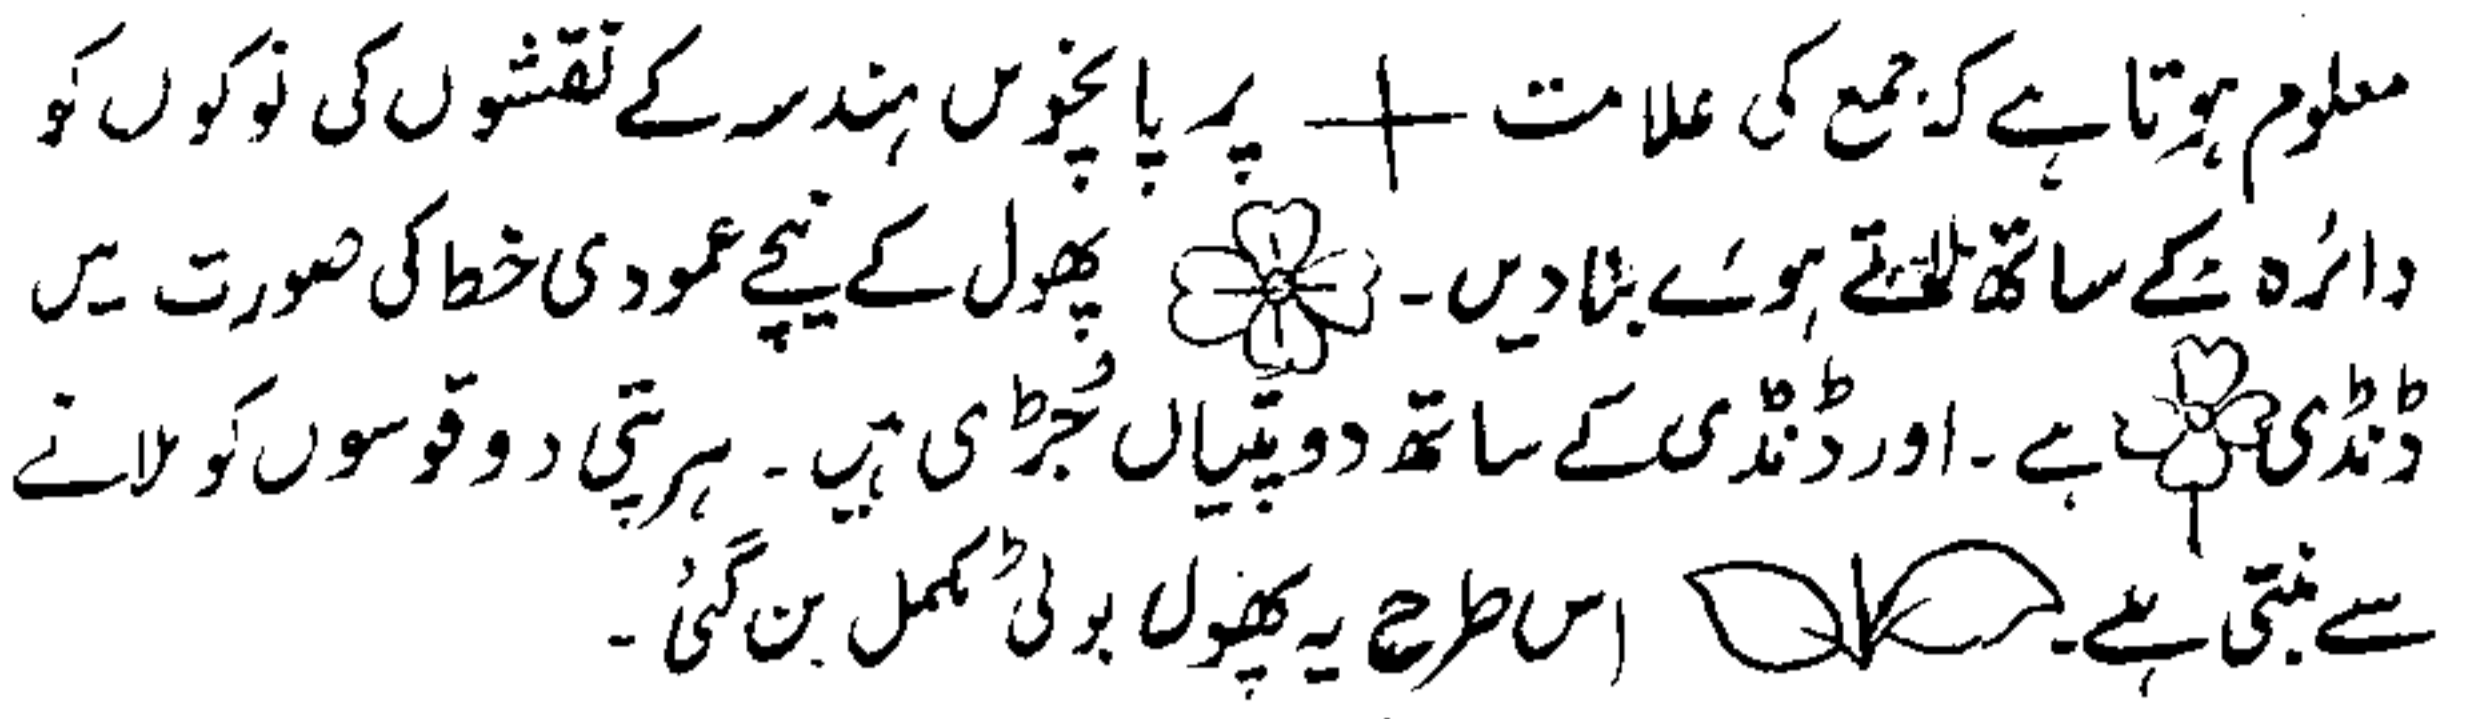 معلوم ہوتا ہے کہ جمع کی علامت + پر پانچوں ہندسہ کے نقشوں کی نوکوں کو
دائرہ کے ساتھ ملاتے ہوئے بنا دیں۔ پھول کے نیچے عمودی خط کی صورت میں
ڈنڈی ہے۔ اور ڈنڈی کے ساتھ دو پتیاں جُڑی ہیں۔ ہر پتی دو قوسوں کو ملانے
سے بنتی ہے۔ اس طرح یہ پھول بوٹی مکمل بن گئی۔